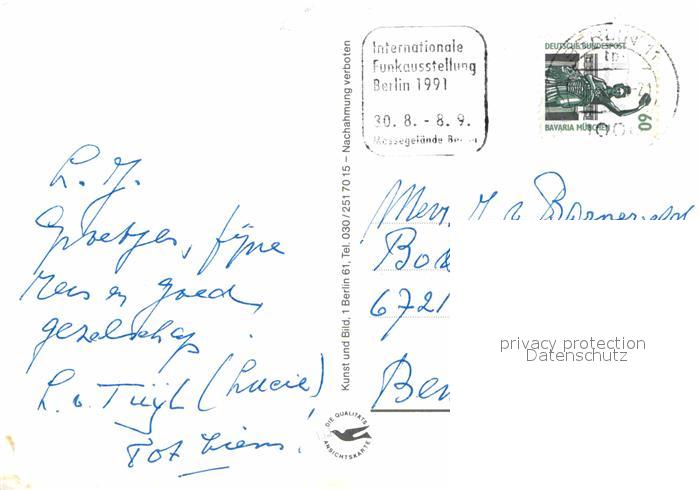 Internationale
Funkausstellung
Berlin 1991
30. 8. - 8. 9.
Messegelände Berlin
BERLIN 11
DEUTSCHE BUNDESPOST
BAVARIA MÜNCHEN
60
L. M.
Groetjes, fijne
reis en goed
gezelschap.
L. v. Tuijl (Lucie)
Tot ziens!
Kunst und Bild, 1 Berlin 61, Tel. 030/2517015 – Nachahmung verboten
DIE QUALITÄTS
ANSICHTSKARTE
Mevr. M. v.
6721
privacy protection
Datenschutz